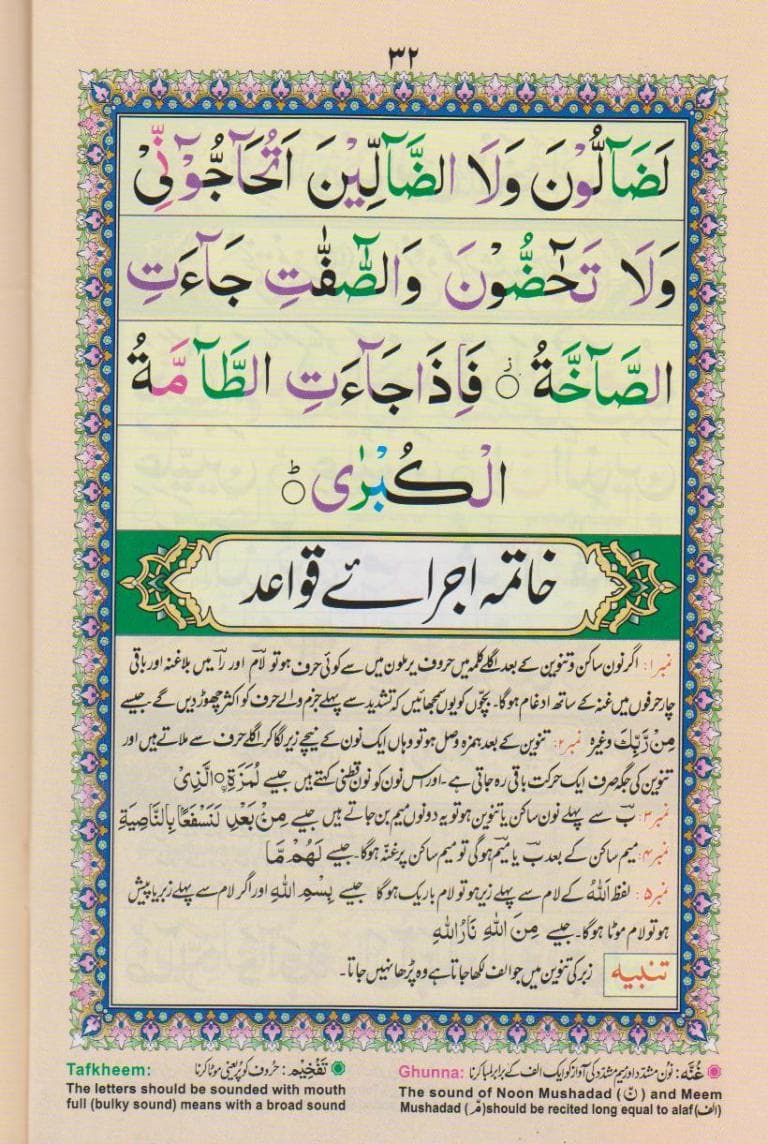 ٣٢
لَضَآلُّوْنَ وَلَا الضَّآلِّيْنَ اَتُحَآجُّوْٓنِّیْ
وَلَا تَحٰٓضُّوْنَ وَالصّٰٓفّٰتِ جَآءَتِ
الصَّآخَّةُ ۝ ز فَاِذَا جَآءَتِ الطَّآمَّةُ
الْكُبْرٰى ۝ ط
خاتمہ اجرائے قواعد
نمبر۱: اگر نون ساکن و تنوین کے بعد اگلے کلمہ میں حروف یرملون میں سے کوئی حرف ہو تو لام اور را میں بلاغنہ اور باقی
چار حرفوں میں غنہ کے ساتھ ادغام ہوگا۔ بچّوں کو یوں سمجھائیں کہ تشدید سے پہلے جزم والے حرف کو اکثر چھوڑ دیں گے۔ جیسے
مِنْ رَّبِّكَ وغیرہ نمبر۲: تنوین کے بعد ہمزہ وصل ہو تو وہاں ایک نون کے نیچے زیر لگا کر اگلے حرف سے ملاتے ہیں اور
تنوین کی جگہ صرف ایک حرکت باقی رہ جاتی ہے۔ اور اس نون کو نون قطنی کہتے ہیں جیسے لُمَزَةِ ۝ الَّذِیْ
نمبر۳: بؔ سے پہلے نون ساکن یا تنوین ہو تو یہ دونوں میم بن جاتے ہیں جیسے مِنْۢ بَعْدِ لَنَسْفَعًۢا بِالنَّاصِيَةِ
نمبر۴: میم ساکن کے بعد بؔ یا میمؔ ہوگی تو میم ساکن پر غنّہ ہوگا۔ جیسے لَهُمْ مَّا
نمبر۵: لفظ اَللهُ کے لام سے پہلے زیر ہو تو لام باریک ہوگا جیسے بِسْمِ اللهِ اور اگر لام سے پہلے زبر یا پیش
ہو تو لام موٹا ہوگا۔ جیسے مِنَ اللهِ نَارُ اللهِ
تنبیہ زبر کی تنوین میں جو الف لکھا جاتا ہے وہ پڑھا نہیں جاتا۔
غُنَّه: نون مشدد اور میم مشدد کی آواز کو ایک الف کے برابر لمبا کرنا Ghunna:
The sound of Noon Mushadad (نّ) and Meem
Mushadad (مّ) should be recited long equal to alaf (الف)
تَفْخِیْم: حروف کو پُر یعنی موٹا کرنا Tafkheem:
The letters should be sounded with mouth
full (bulky sound) means with a broad sound